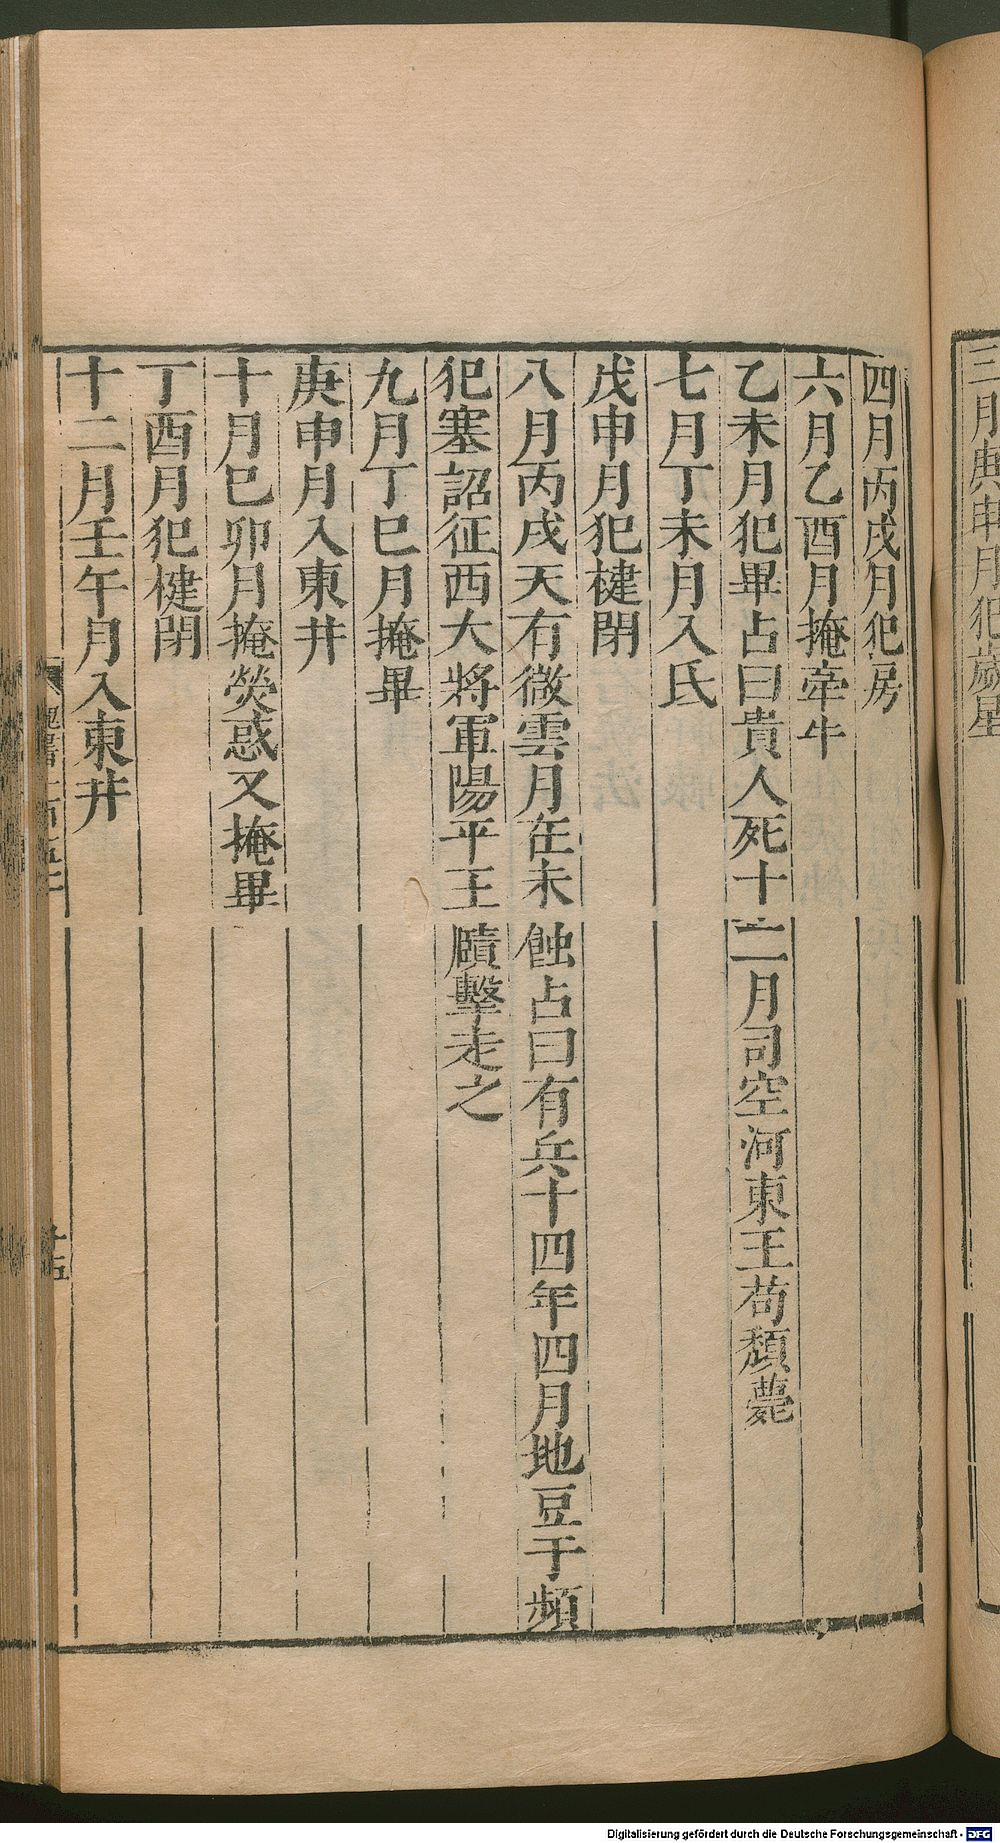 三月庚申月犯歲星
四月丙戌月犯房
六月乙酉月掩牽牛
乙未月犯畢占曰貴人死十二月司空河東王苟頹薨
七月丁未月入氐
戊申月犯楗閉
八月丙戌天有微雲月在未蝕占曰有兵十四年四月地豆于頻
犯塞詔征西大將軍陽平王頤擊走之
九月丁巳月掩畢
庚申月入東井
十月己卯月掩熒惑又掩畢
丁酉月犯楗閉
十二月壬午月入東井
Digitalisierung gefördert durch die Deutsche Forschungsgemeinschaft - DFG